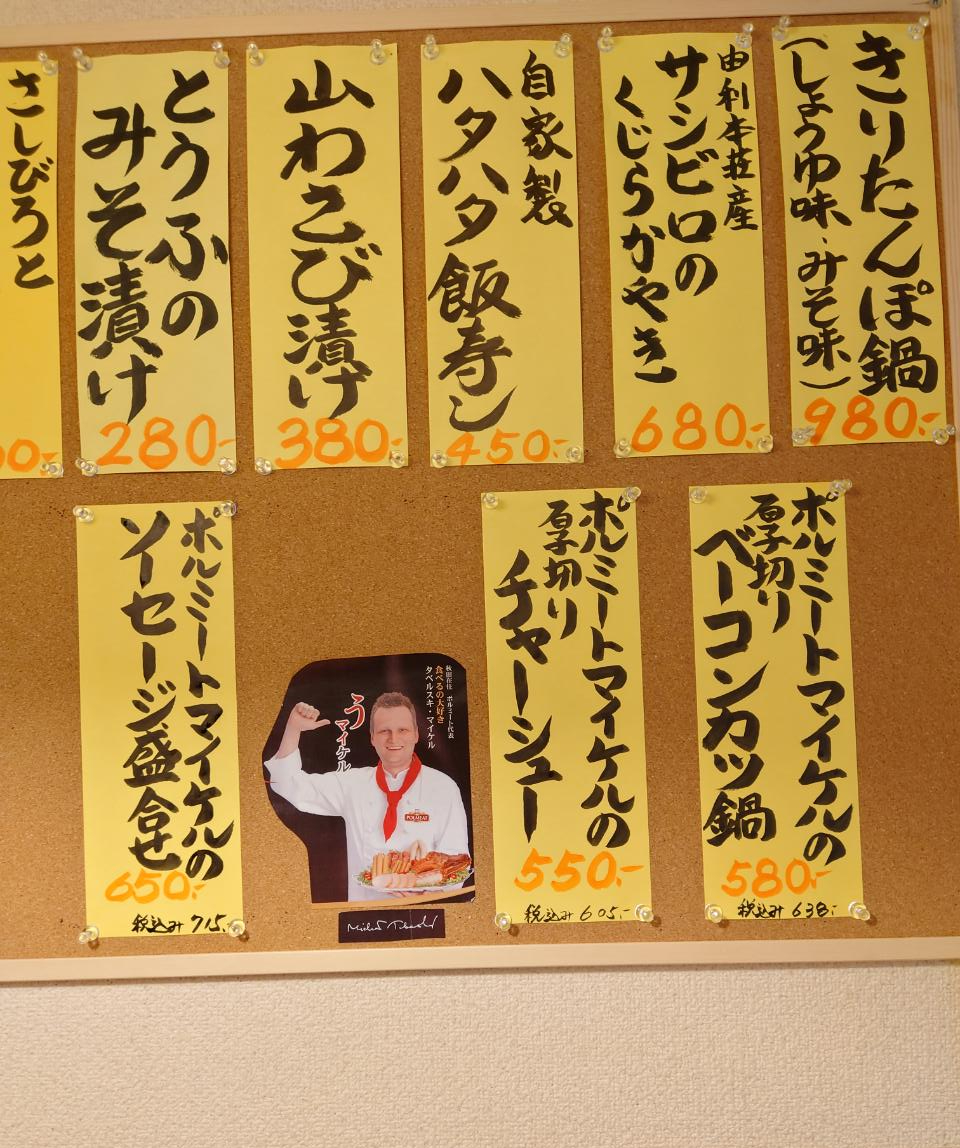 きりたんぽ鍋
(しょうゆ味、みそ味)
980.-
由利本荘産
サシビロの
くじらかやき
680.-
自家製
ハタハタ
飯寿し
450.-
山わさび漬け
380.-
とうふの
みそ漬け
280.-
さしびろと
0.-
ポルミートマイケルの
厚切り
ベーコンカツ鍋
580.-
税込み 638.-
ポルミートマイケルの
厚切り
チャーシュー
550.-
税込み 605.-
秋田在住 ポルミート代表
食べるの大好き
タベルスキ・マイケル
う
マイケル
POLMEAT
ポルミートマイケルの
ソーセージ盛合せ
650.-
税込み 715.-